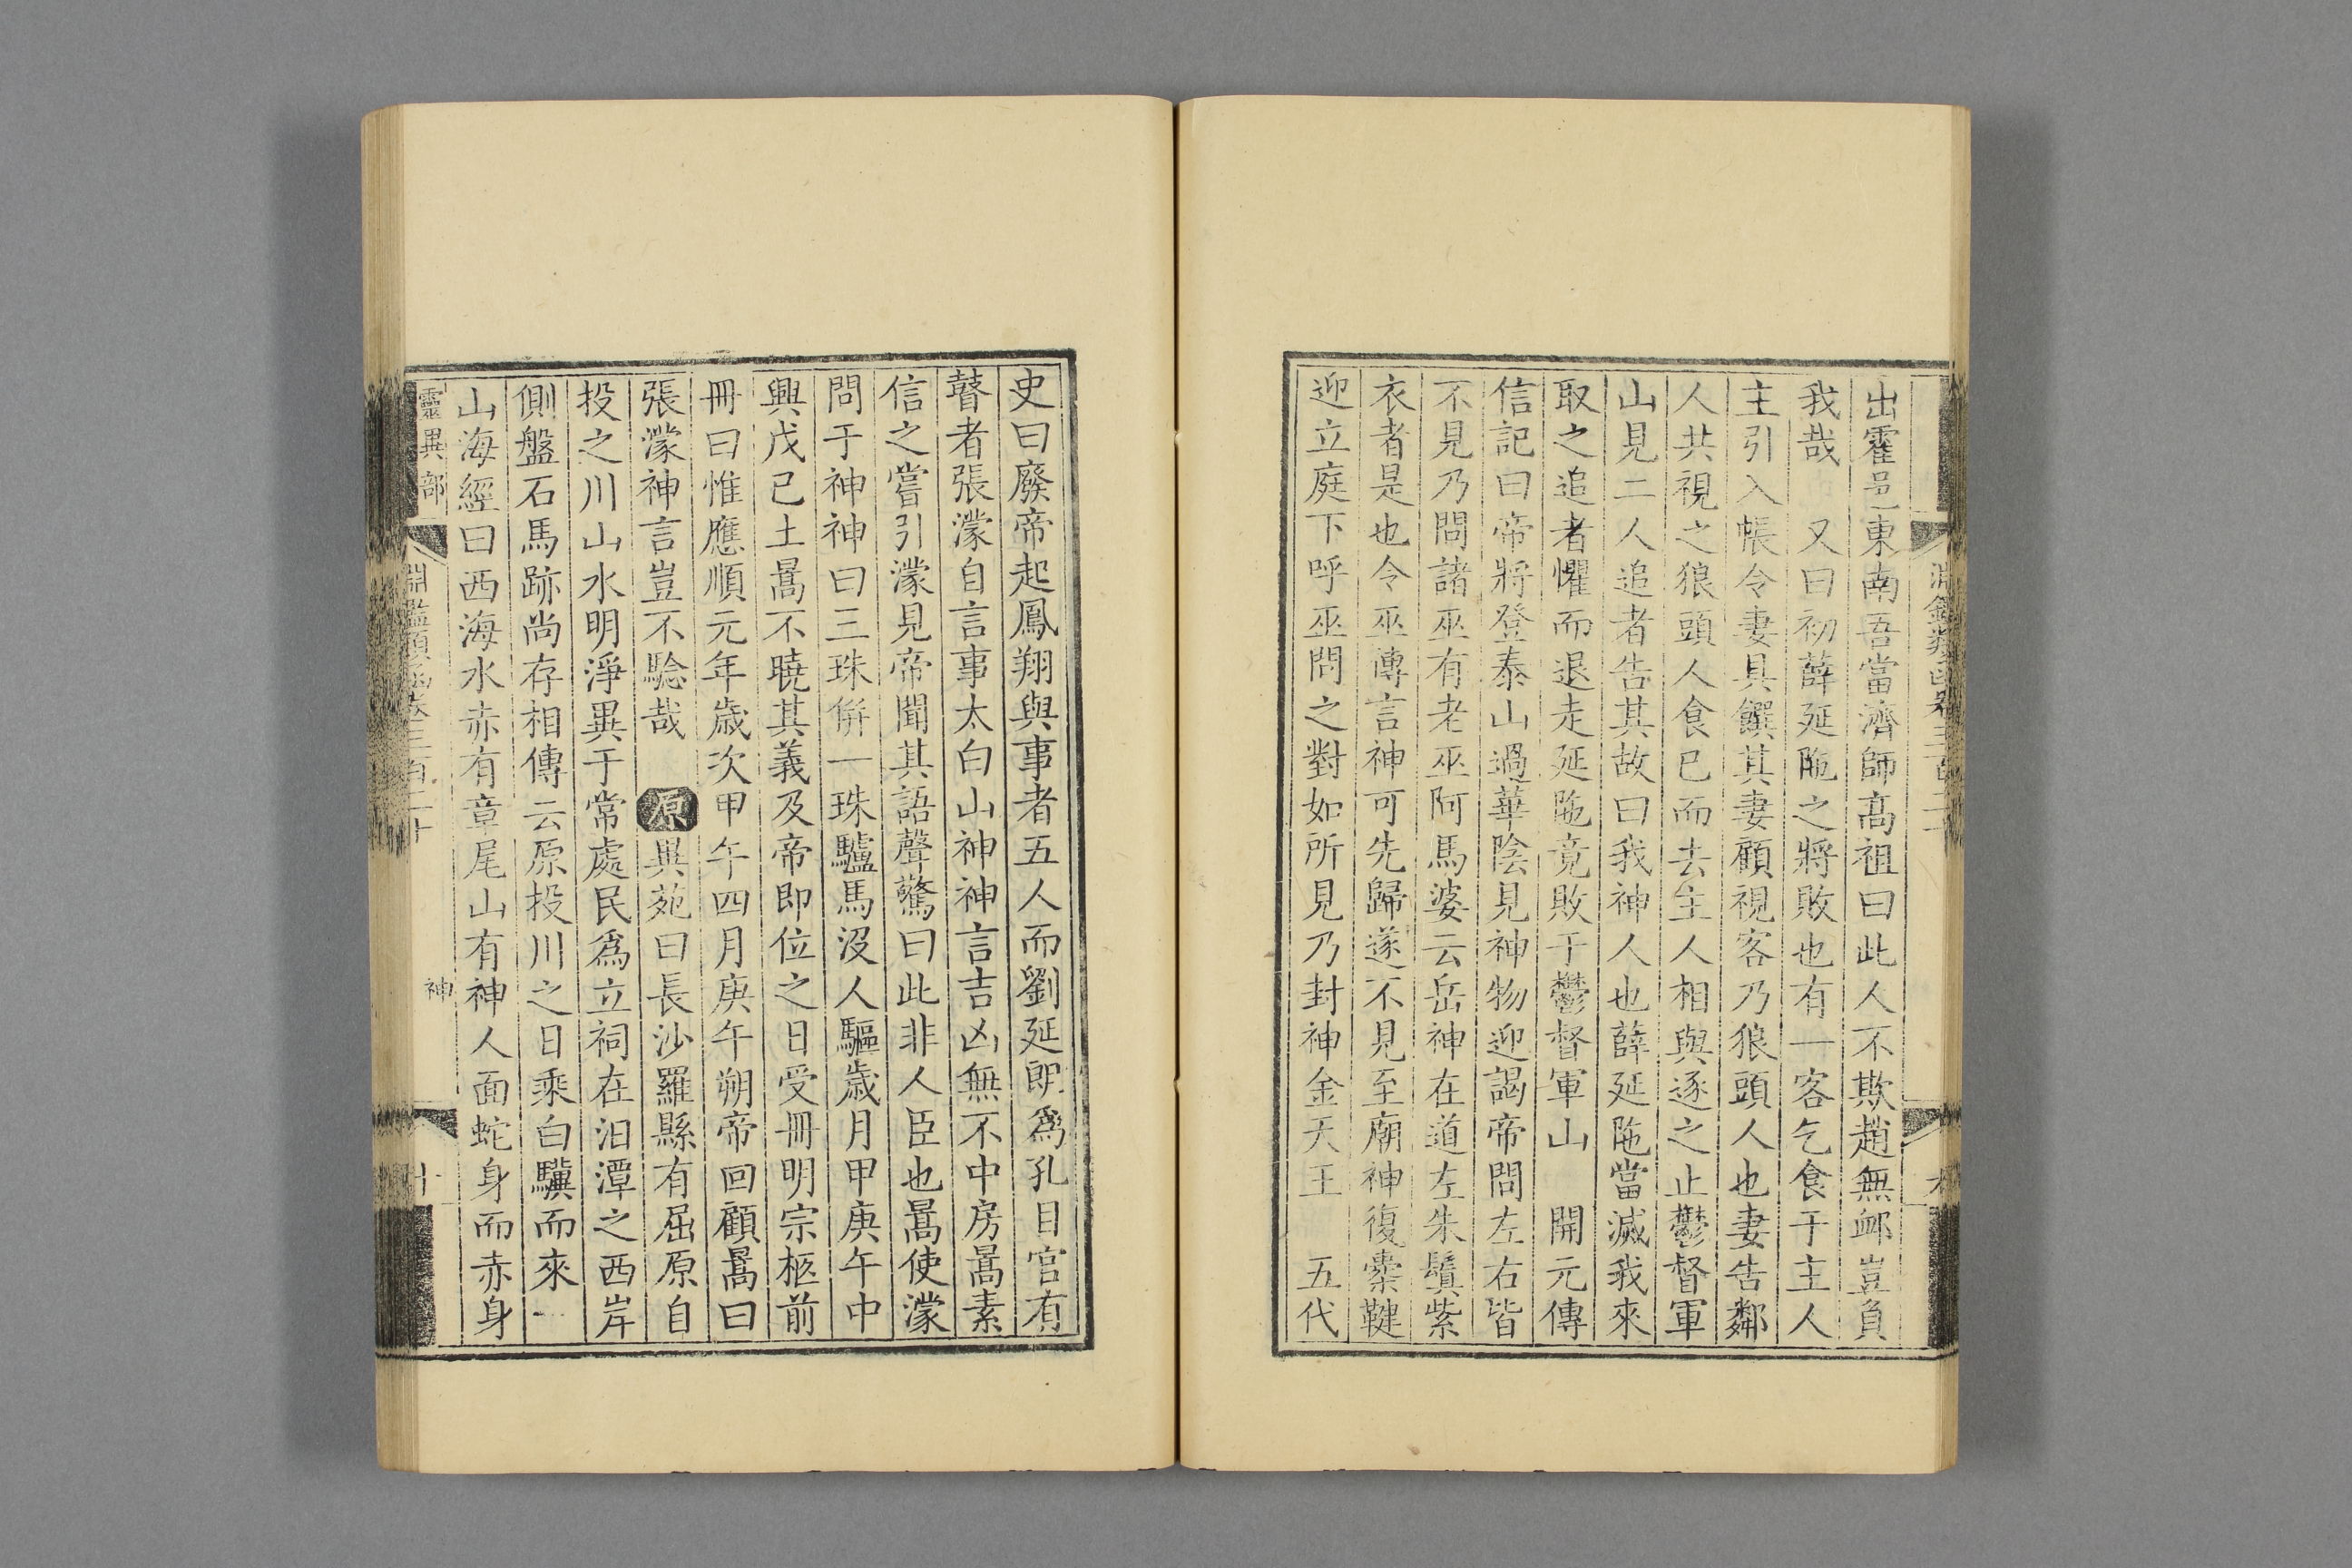 出霍邑東南吾當濟師髙祖曰此人不欺趙無卹豈負
我哉　又曰初薛延陁之將敗也有一客乞食于主人
主引入帳令妻具饌其妻顧視客乃狼頭人也妻告鄰
人共視之狼頭人食已而去主人相與逐之止鬱督軍
山見二人追者告其故曰我神人也薛延陁當滅我來
取之追者懼而退走延陁竟敗于鬱督軍山　開元傳
信記曰帝將登泰山過華陰見神物迎謁帝問左右皆
不見乃問諸巫有老巫阿馬婆云岳神在道左朱鬢紫
衣者是也令巫傳言神可先歸遂不見至廟神復櫜鞬
迎立庭下呼巫問之對如所見乃封神金天王　五代
史曰廢帝起鳳翔與事者五人而劉延朗爲孔目官有
瞽者張濛自言事太白山神神言吉凶無不中房暠素
信之嘗引濛見帝聞其語聲驚曰此非人臣也暠使濛
問于神神曰三珠併一珠驢馬没人驅歳月甲庚午中
興戊己土暠不曉其義及帝即位之日受冊明宗柩前
冊曰惟應順元年歳次甲午四月庚午朔帝回顧暠曰
張濛神言豈不騐哉　原異苑曰長沙羅縣有屈原自
投之川山水明淨異于常處民爲立祠在汨潭之西岸
側盤石馬跡尚存相傳云原投川之日乘白驥而來
山海經曰西海水赤有章尾山有神人面蛇身而赤身
靈異部
淵鑑類函卷三百二十
神
十